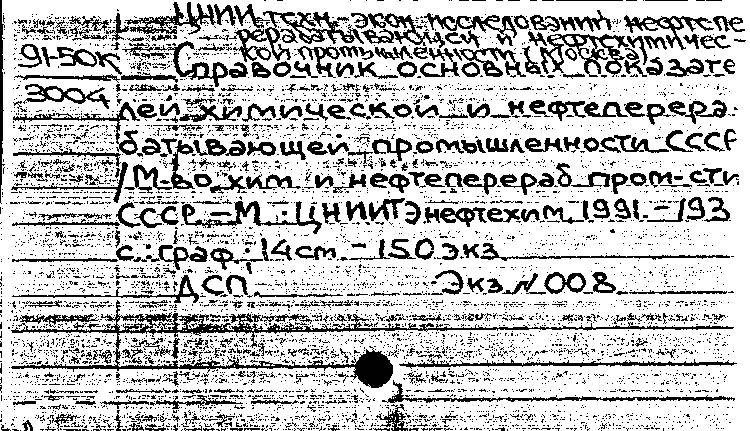 ЦНИИ техн.-экон. исследований нефтепе
рерабатывающей и нефтехимичес-
кой промышленности (Москва)
91-50к Справочник основных показате
3004 лей химической и нефтеперера-
батывающей промышленности СССР
/М-во хим. и нефтеперераб. пром-сти
СССР. – М.: ЦНИИТЭнефтехим, 1991. – 193
с.: граф.; 14 см. – 150 экз.
ДСП. Экз. № 008.